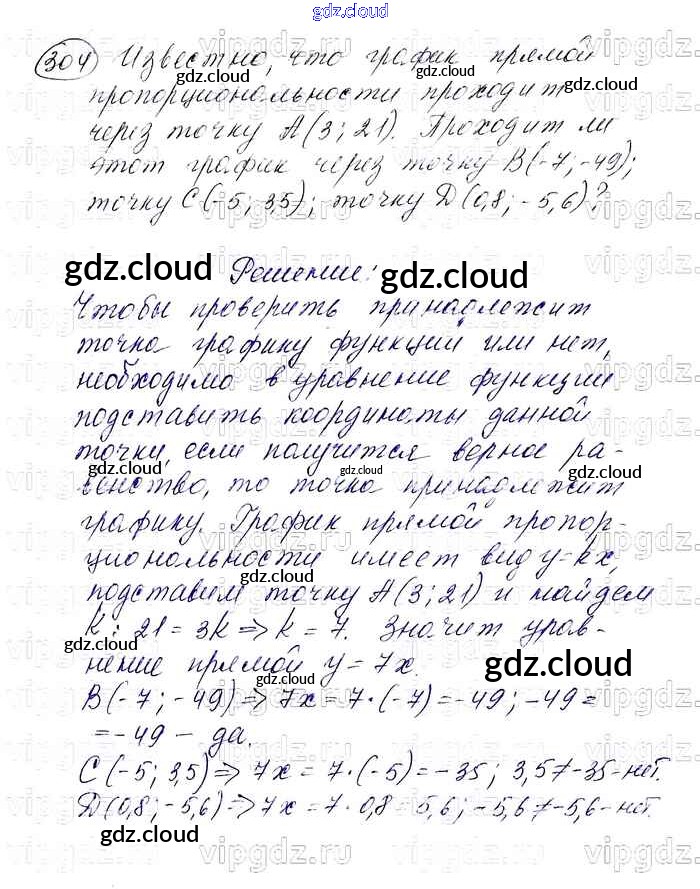 gdz.cloud
304 Известно, что график прямой
пропорциональности проходит
через точку A(3; 21). Проходит ли
этот график через точку B(-7; -49);
точку C(-5; 3,5); точку D(0,8; -5,6)?
gdz.cloud Решение: gdz.cloud
Чтобы проверить принадлежит
точка графику функции или нет,
необходимо в уравнение функции
подставить координаты данной
точки, если получится верное ра-
венство, то точка принадлежит
графику. График прямой пропор-
циональности имеет вид y=kx,
подставим точку A(3; 21) и найдем
k: 21 = 3k => k = 7. Значит урав-
нение прямой y = 7x.
B(-7; -49) => 7x = 7·(-7) = -49; -49 =
= -49 - да.
C(-5; 3,5) => 7x = 7·(-5) = -35; 3,5 ≠ -35 - нет.
D(0,8; -5,6) => 7x = 7·0,8 = 5,6; -5,6 ≠ -5,6 - нет.
gdz.cloud